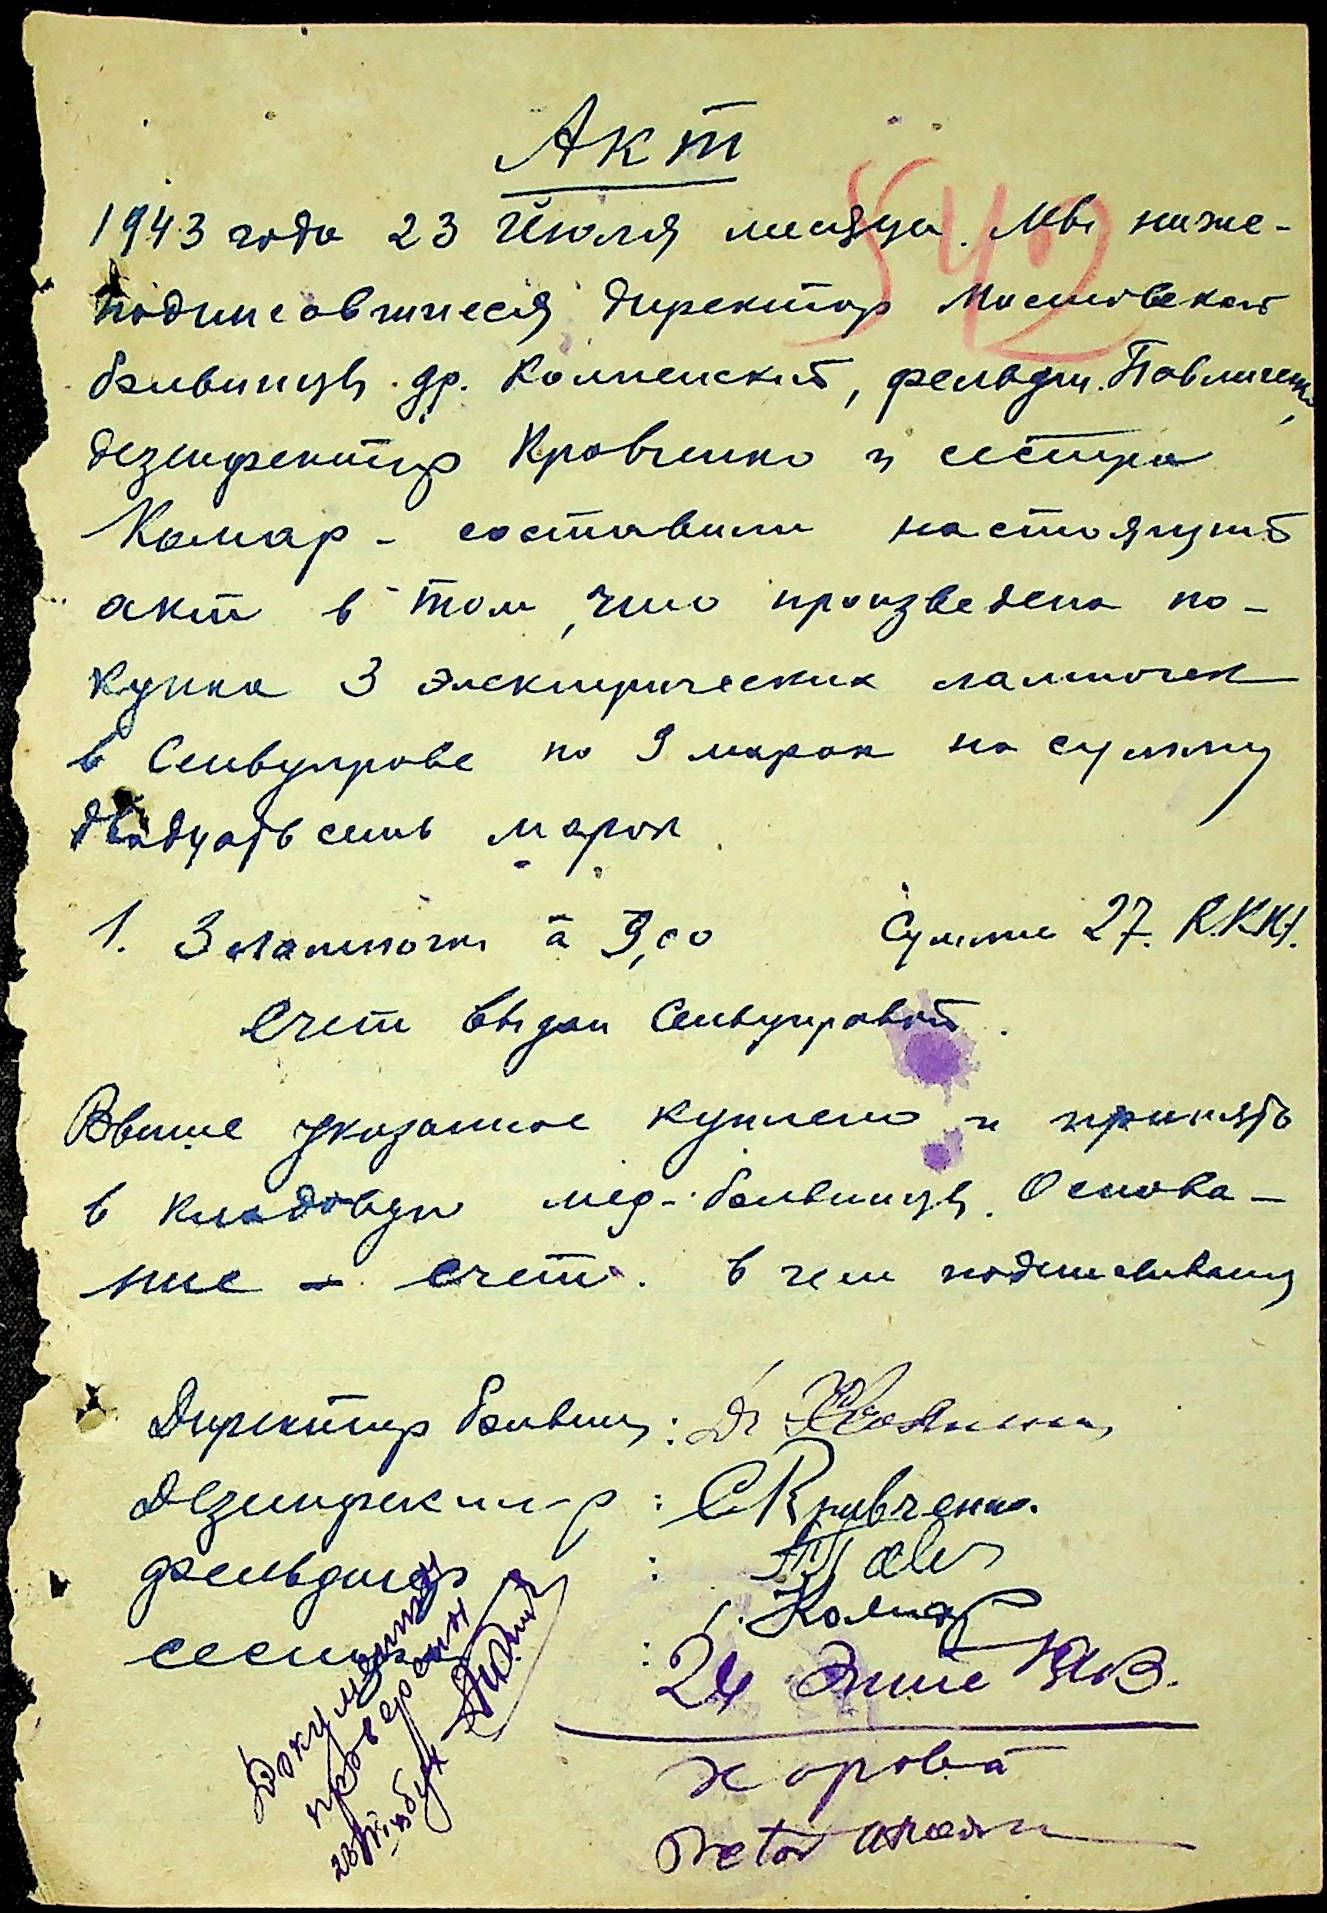 Акт
542
1943 года 23 Июля месяца. Мы ниже-
подписавшиеся Директор Мостовской
больницы др. Колпенский, фельдш. Павличенко,
дезинфектор Кравченко и сестра
Комар - составили настоящий
акт в том, что произведена по-
купка 3 электрических лампочек
в Сельуправе по 9 марок на сумму
двадцать семь марок
1. 3 лампочки à 9,00 Сумма 27. R.KM.
Счет выдан Сельуправой.
Выше указанное куплено и принято
в кладовую мед-больницы. Основа-
ние - счет. В чем подписываемся
Директор больниц: Dr
Дезинфект-р : СКравченко.
фельдшер : Пав
сестра : Комар
24
Документы
проверены